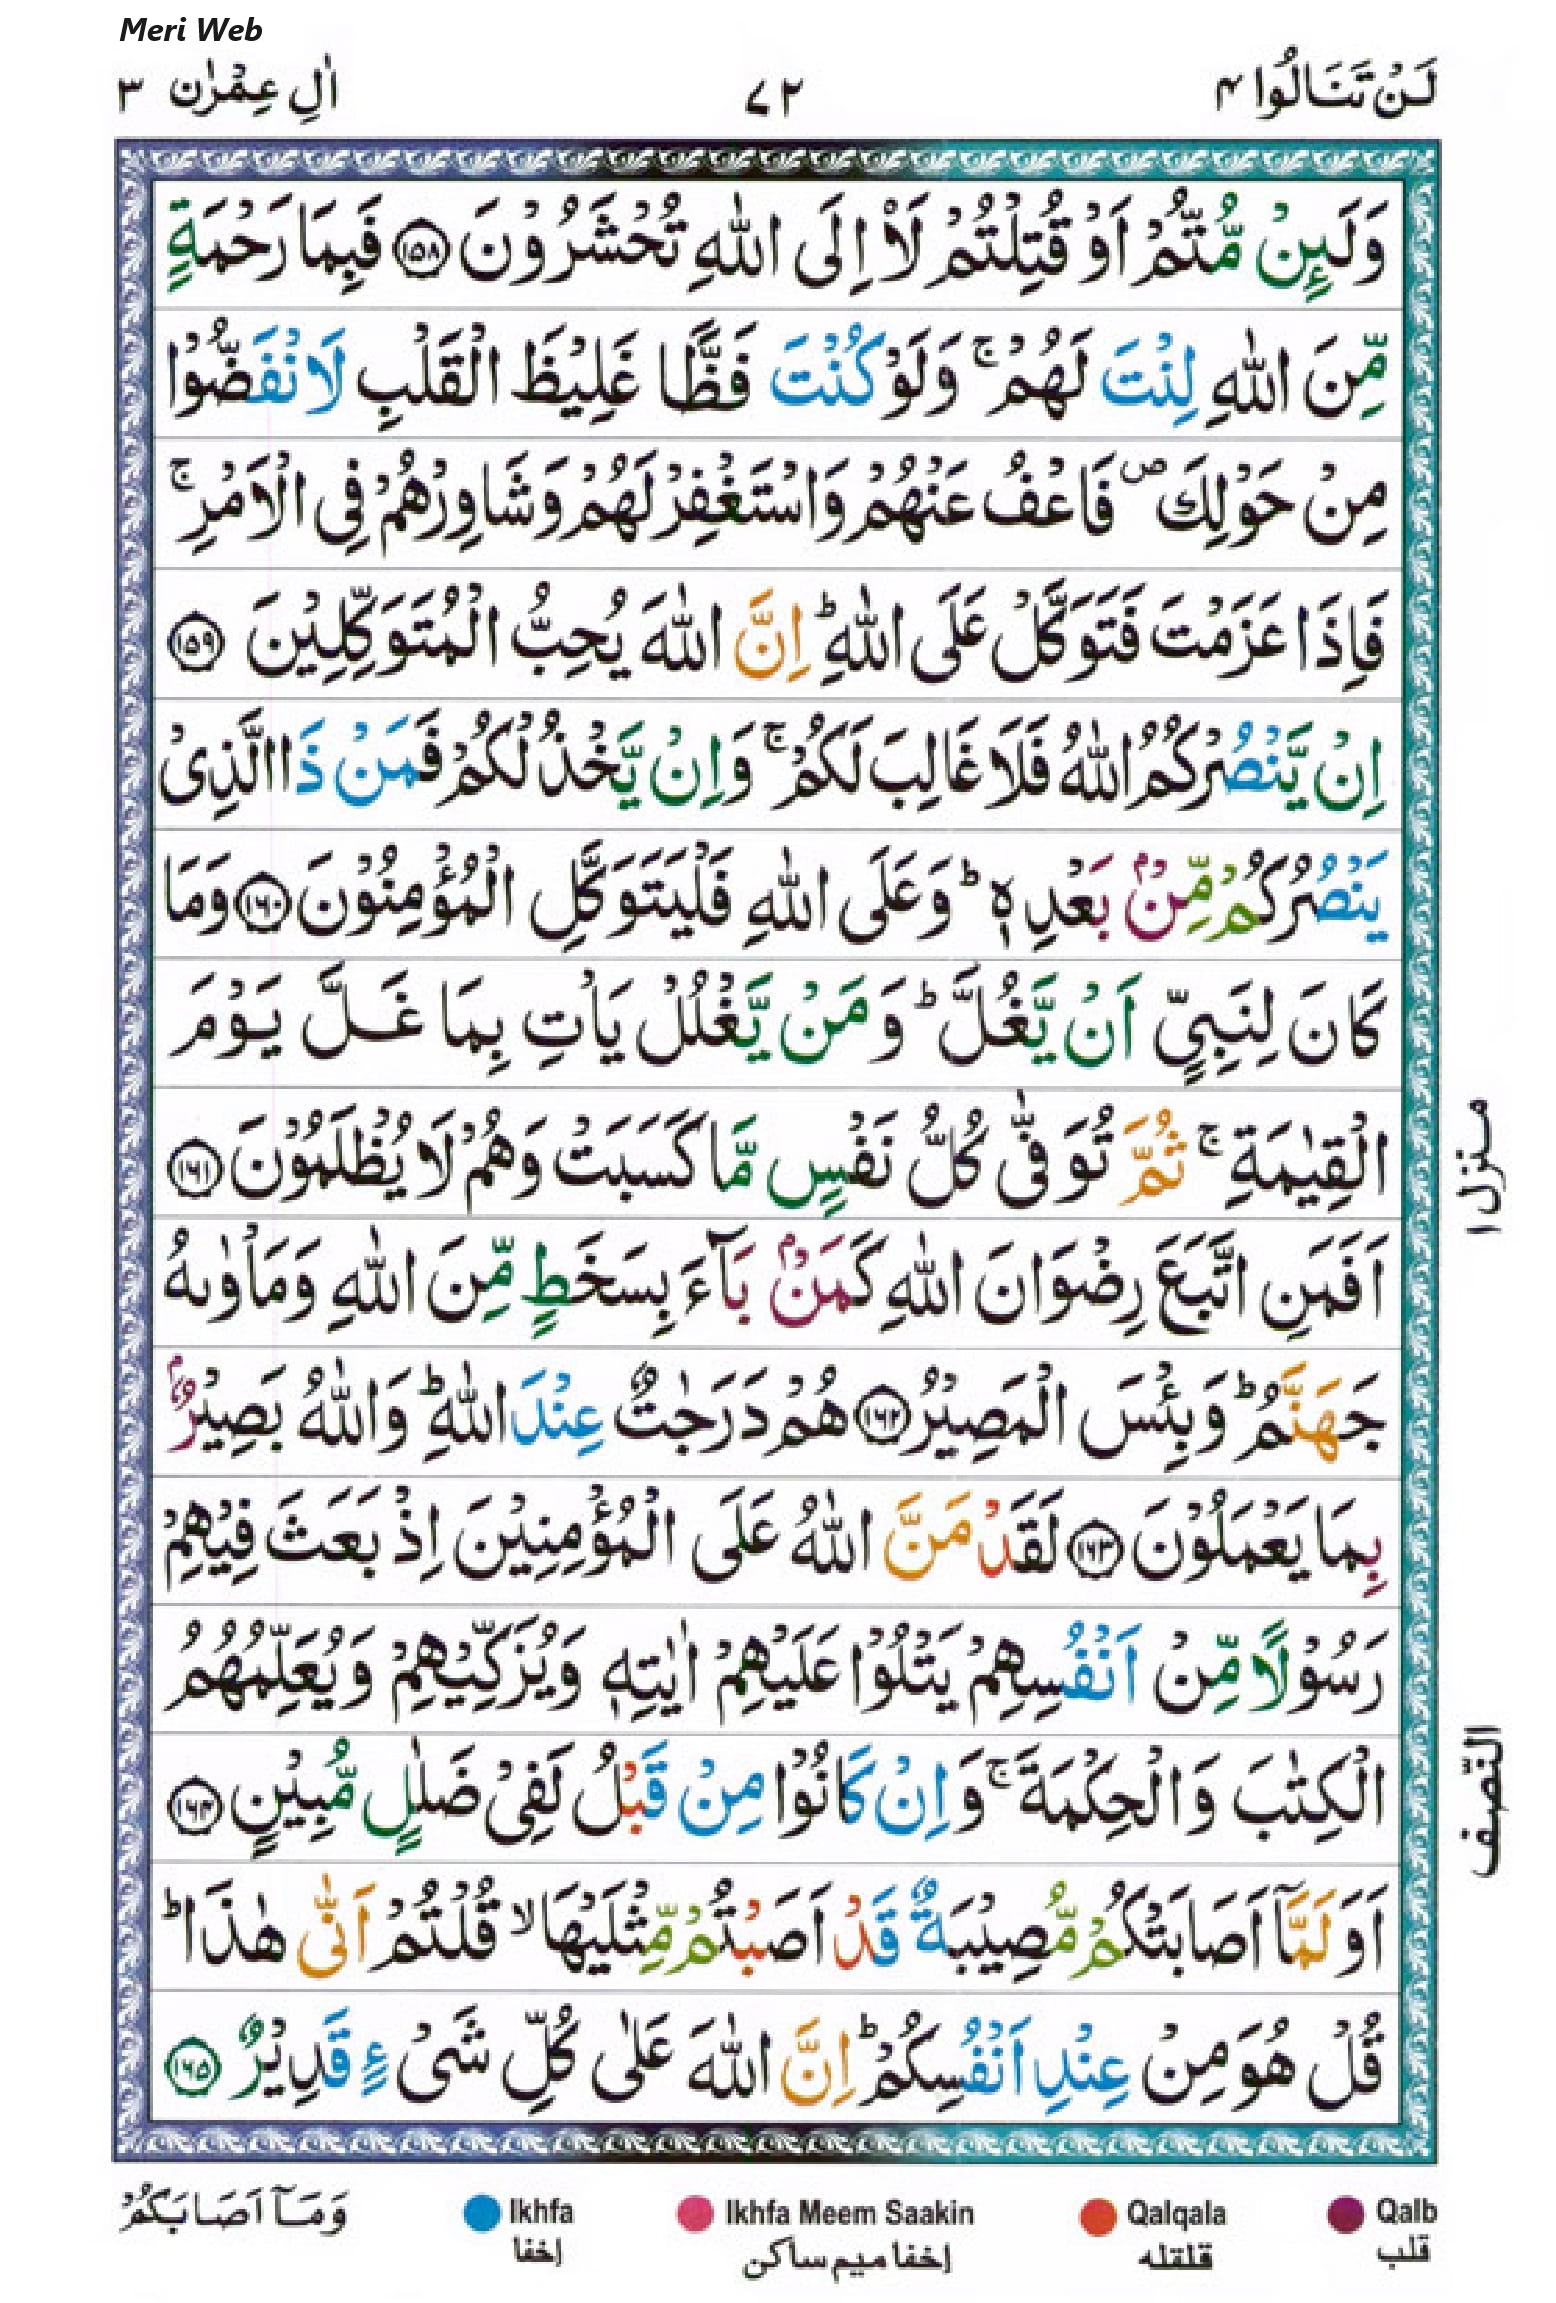 Meri Web
لَنْ تَنَالُوا ۴
۷۲
اٰلِ عِمْرٰن ۳
وَلَىِٕنْ مُّتُّمْ اَوْ قُتِلْتُمْ لَاْ اِلَى اللّٰهِ تُحْشَرُوْنَ ۝۱۵۸ فَبِمَا رَحْمَةٍ
مِّنَ اللّٰهِ لِنْتَ لَهُمْ ۚ وَلَوْ كُنْتَ فَظًّا غَلِیْظَ الْقَلْبِ لَانْفَضُّوْا
مِنْ حَوْلِكَ ۪ فَاعْفُ عَنْهُمْ وَاسْتَغْفِرْ لَهُمْ وَشَاوِرْهُمْ فِی الْاَمْرِ ۚ
فَاِذَا عَزَمْتَ فَتَوَكَّلْ عَلَى اللّٰهِ ؕ اِنَّ اللّٰهَ یُحِبُّ الْمُتَوَكِّلِیْنَ ۝۱۵۹
اِنْ یَّنْصُرْكُمُ اللّٰهُ فَلَا غَالِبَ لَكُمْ ۚ وَاِنْ یَّخْذُلْكُمْ فَمَنْ ذَا الَّذِیْ
یَنْصُرُكُمْ مِّنْۢ بَعْدِهٖ ؕ وَعَلَى اللّٰهِ فَلْیَتَوَكَّلِ الْمُؤْمِنُوْنَ ۝۱۶۰ وَمَا
كَانَ لِنَبِیٍّ اَنْ یَّغُلَّ ؕ وَمَنْ یَّغْلُلْ یَاْتِ بِمَا غَلَّ یَوْمَ
الْقِیٰمَةِ ۚ ثُمَّ تُوَفّٰی كُلُّ نَفْسٍ مَّا كَسَبَتْ وَهُمْ لَا یُظْلَمُوْنَ ۝۱۶۱
اَفَمَنِ اتَّبَعَ رِضْوَانَ اللّٰهِ كَمَنْۢ بَآءَ بِسَخَطٍ مِّنَ اللّٰهِ وَمَاْوٰىهُ
جَهَنَّمُ ؕ وَبِئْسَ الْمَصِیْرُ ۝۱۶۲ هُمْ دَرَجٰتٌ عِنْدَ اللّٰهِ ؕ وَاللّٰهُ بَصِیْرٌۢ
بِمَا یَعْمَلُوْنَ ۝۱۶۳ لَقَدْ مَنَّ اللّٰهُ عَلَى الْمُؤْمِنِیْنَ اِذْ بَعَثَ فِیْهِمْ
رَسُوْلًا مِّنْ اَنْفُسِهِمْ یَتْلُوْا عَلَیْهِمْ اٰیٰتِهٖ وَیُزَكِّیْهِمْ وَیُعَلِّمُهُمُ
الْكِتٰبَ وَالْحِكْمَةَ ۚ وَاِنْ كَانُوْا مِنْ قَبْلُ لَفِیْ ضَلٰلٍ مُّبِیْنٍ ۝۱۶۴
اَوَلَمَّاۤ اَصَابَتْكُمْ مُّصِیْبَةٌ قَدْ اَصَبْتُمْ مِّثْلَیْهَا ۙ قُلْتُمْ اَنّٰی هٰذَا ؕ
قُلْ هُوَ مِنْ عِنْدِ اَنْفُسِكُمْ ؕ اِنَّ اللّٰهَ عَلٰی كُلِّ شَیْءٍ قَدِیْرٌ ۝۱۶۵
منزل ۱
النّصف
وَمَاۤ اَصَابَكُمْ
Ikhfa
إخفا
Ikhfa Meem Saakin
إخفا ميم ساكن
Qalqala
قلقله
Qalb
قلب